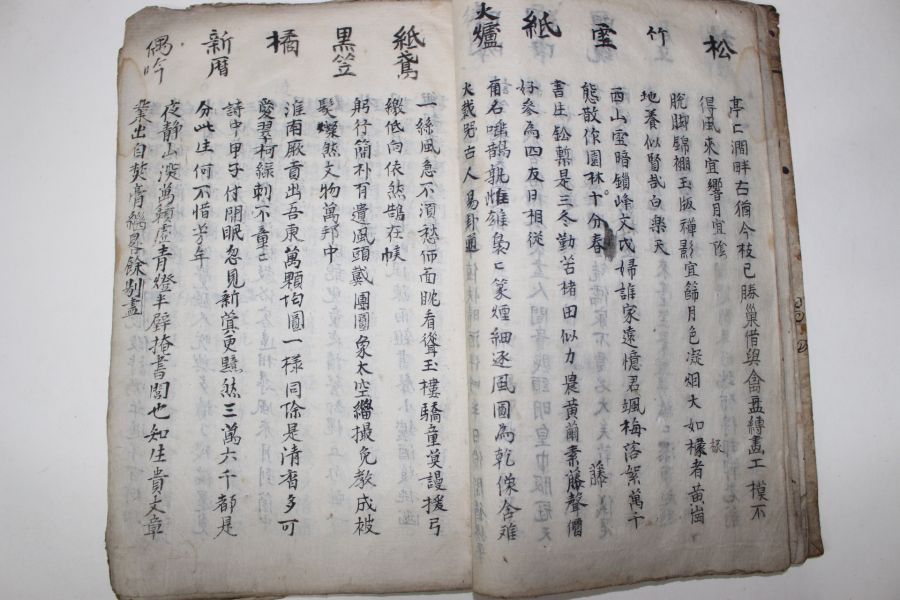 松
亭亡澗畔右猶今枝已勝巢借與禽盡縳畵工模不
得風來宜響月宜陰
竹
脫脚錦棚玉版禪影宜篩月色凝烟大如椽者黃崗
地養似賢哉白樂天
雪
西山雪暗鎖峰文戊婦誰家遠憶君颯梅落絮萬千
態散作園林十分春
紙
書生鈆槧是三冬勤苦楮田似力農黃蘭素藤聲價
好參為四友日相從
火爐
裊亡篆煙細逐風圖為乾像含难
火戱 古人易卦通
紙鳶
一絲風急不須愁仰面眺看聳玉樓驕童莫謾援弓
繳低向依然鵠在候
黑笠
躬行簡朴有遺風頭戴團圓象太空緇撮免教成被
髮燦然文物萬邦中
橘
淮南厥貢出吾東萬顆勻圓一樣同除是淸香多可
愛翠柯綠刺不童亡
新曆
詩中甲子付閒眠忽見新蓂更黯然三萬六千都是
分此生何不惜芳年
偶吟
夜靜山深萬籟虛靑燈半壁掩書閣也知生貴文章
業出自焚膏繼晷餘剔盡